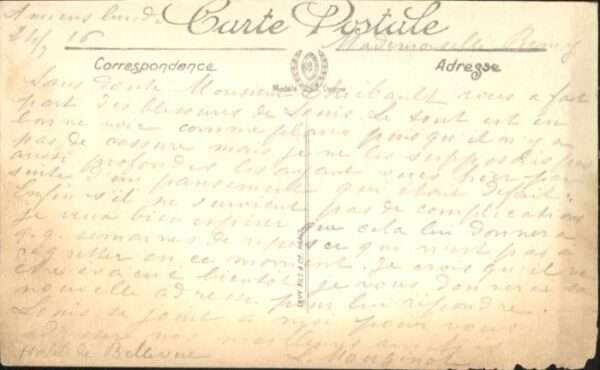 Carte Postale
Amiens lundi
24/7 16
Mademoiselle Remy
Correspondance
Adresse
Sans doute Monsieur Thiébault vous a fait
part des blessures de Louis. Ce sont est en
bonne voie comme plaies puisqu'il n'y a
pas de cassure mais je ne les supposais pas
aussi profondes les ayant vues hier par
suite d'un pansement qui était défait.
Enfin s'il ne survient pas de complications
je veux bien espérer que cela lui donnera
q.q. semaines de repos ce qui n'est pas à
regretter en ce moment. Je crois qu'il va
être évacué bientôt je vous donnerai sa
nouvelle adresse pour lui répondre.
Louis se joint à moi pour vous
adresser nos meilleures amitiés
L. Mouginot
Hôtel de Bellevue